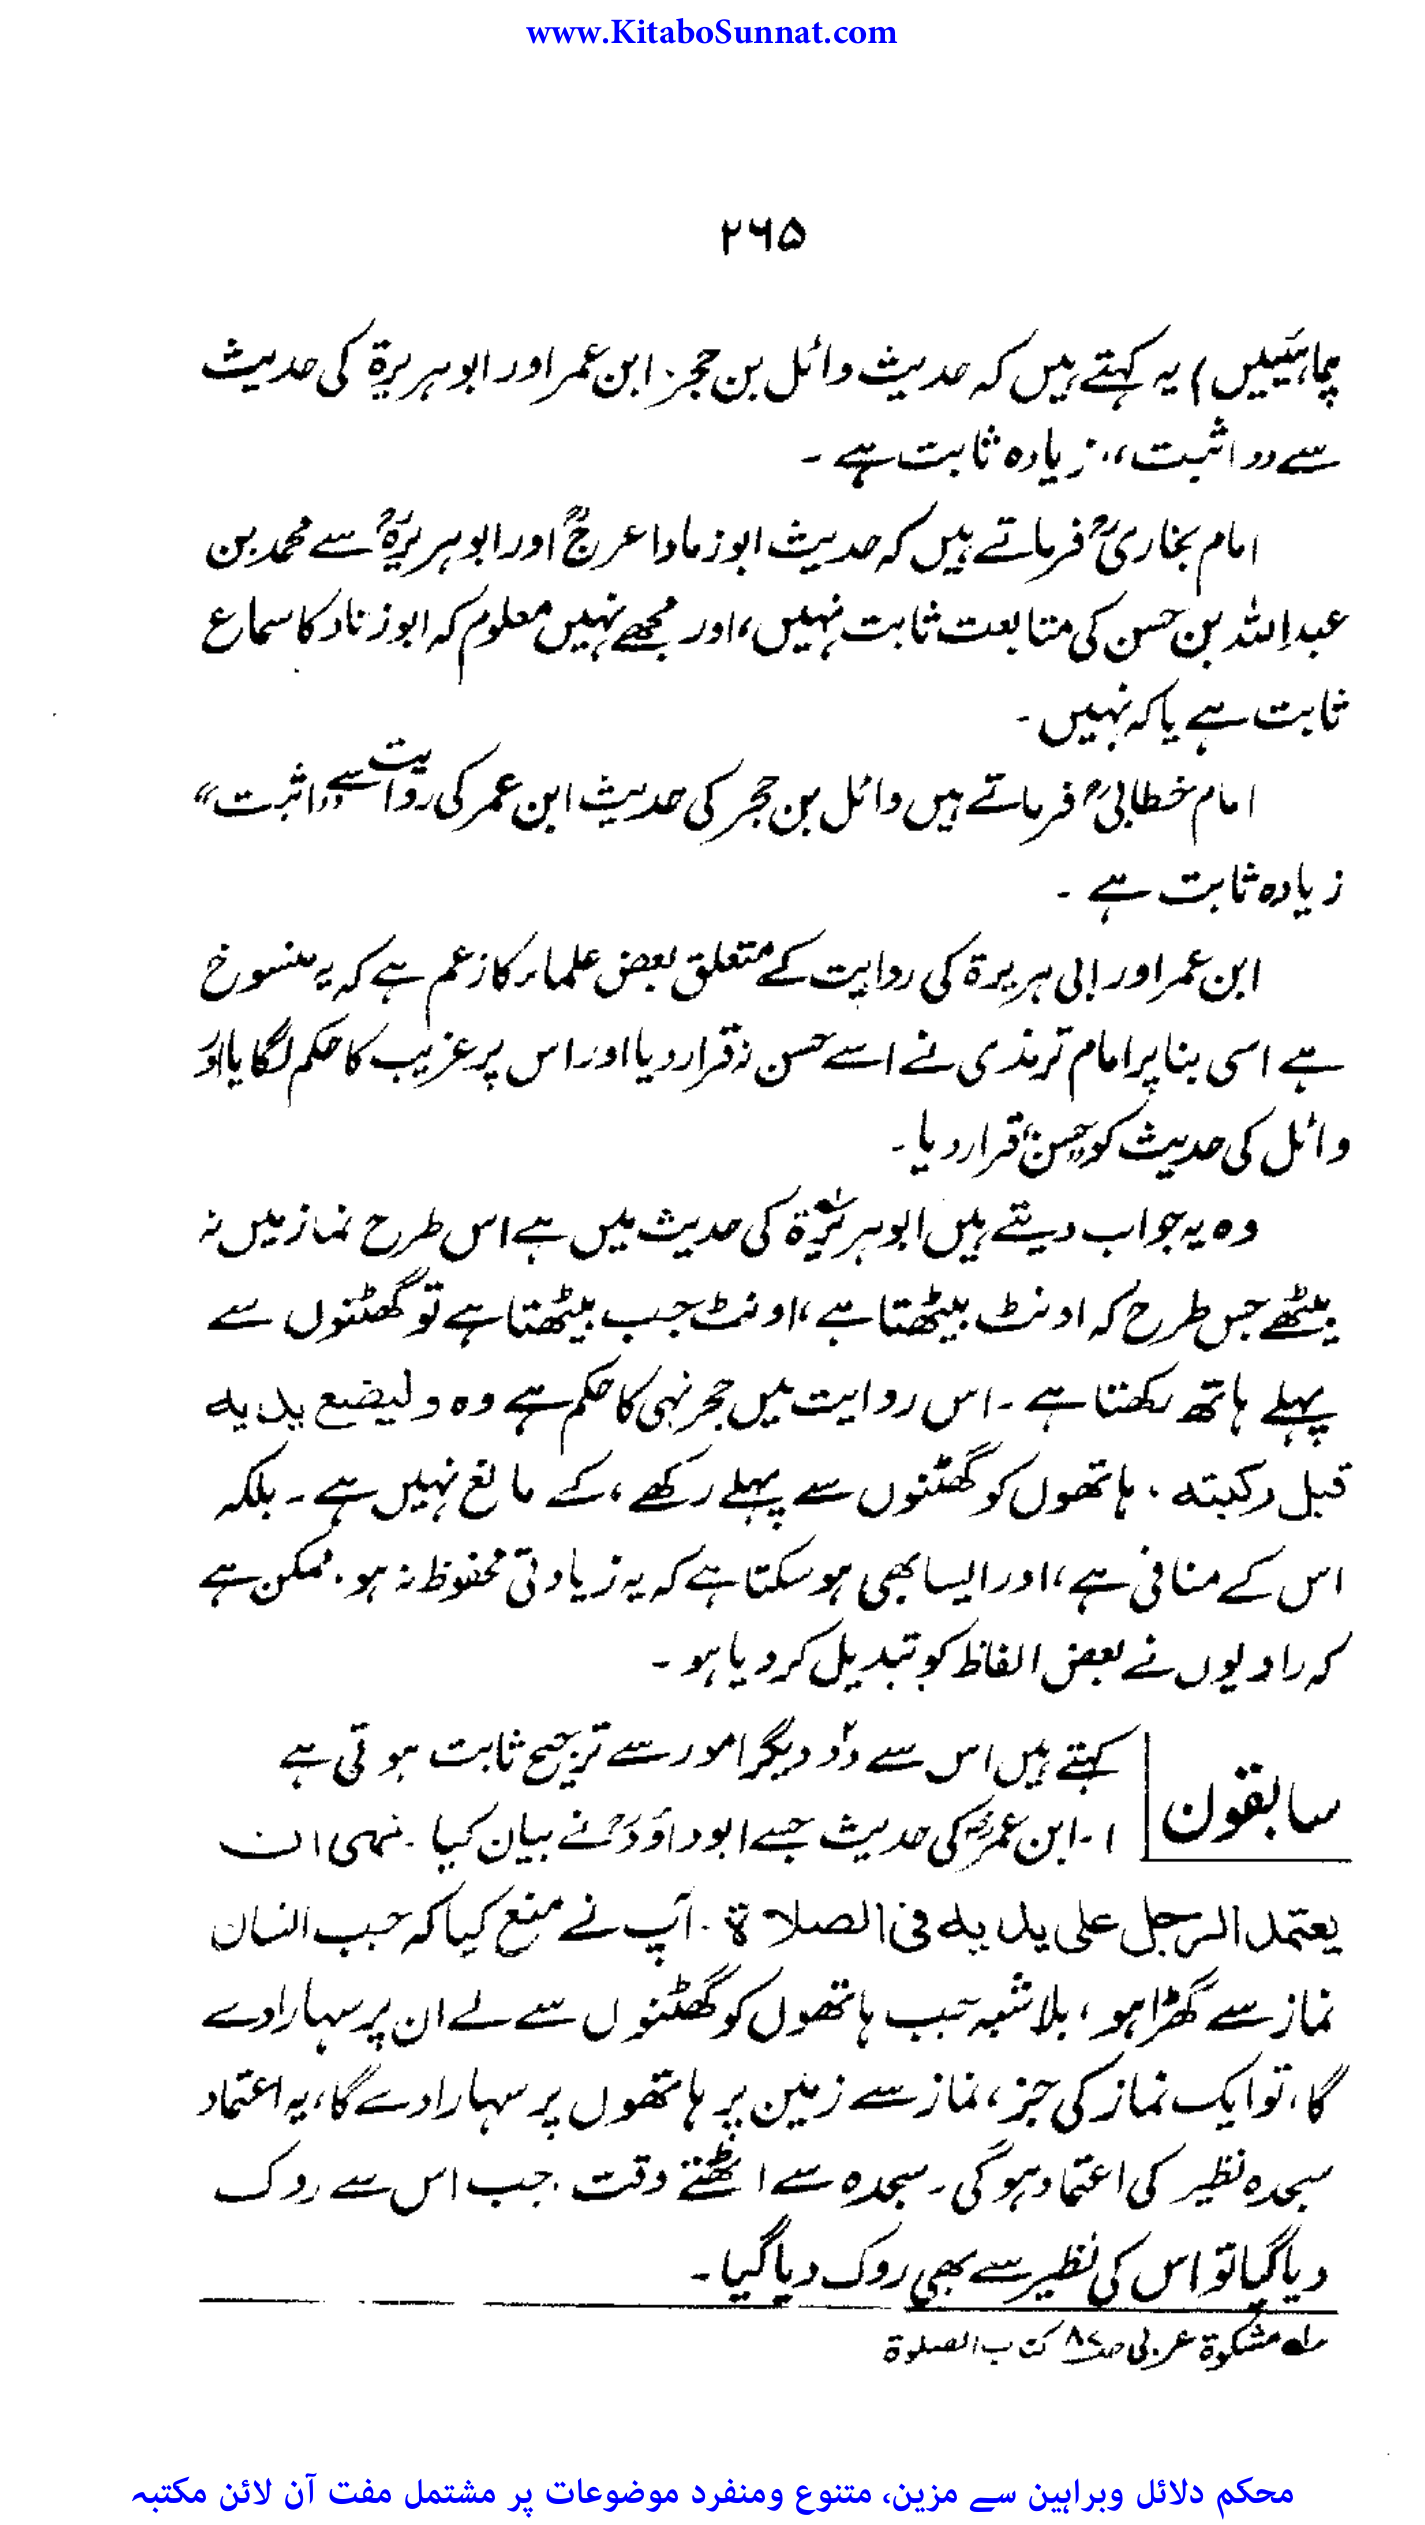 www.KitaboSunnat.com
۲۶۵
چاہئییں) یہ کہتے ہیں کہ حدیث وائل بن حجر۔ ابن عمر اور ابو ہریرۃ کی حدیث
سے ”اثبت“ زیادہ ثابت ہے ۔
امام بخاریؒ فرماتے ہیں کہ حدیث ابوزماداعرجؒ اور ابوہریرۃؓ سے محمد بن
عبداللہ بن حسن کی متابعت ثابت نہیں، اور مجھے نہیں معلوم کہ ابوزناد کا سماع
ثابت ہے یا کہ نہیں ۔
امام خطابیؒ فرماتے ہیں وائل بن حجر کی حدیث ابن عمر کی روایت سے ”اثبت“
زیادہ ثابت ہے ۔
ابن عمر اور ابی ہریرۃ کی روایت کے متعلق بعض علماء کا زعم ہے کہ یہ منسوخ
ہے اسی بنا پر امام ترمذی نے اسے حسن نہ قرار دیا اور اس پر غریب کا حکم لگایا اور
وائل کی حدیث کو ”حسن“ قرار دیا ۔
وہ یہ جواب دیتے ہیں ابوہریرۃؓ کی حدیث میں ہے اس طرح نماز میں نہ
بیٹھے جس طرح کہ اونٹ بیٹھتا ہے، اونٹ جب بیٹھتا ہے تو گھٹنوں سے
پہلے ہاتھ رکھتا ہے ۔ اس روایت میں جو نہی کا حکم ہے وہ ولیضع یدیه
قبل رکبته . ہاتھوں کو گھٹنوں سے پہلے رکھے، کے مانع نہیں ہے ۔ بلکہ
اس کے منافی ہے، اور ایسا بھی ہو سکتا ہے کہ یہ زیادتی محفوظ نہ ہو۔ ممکن ہے
کہ راویوں نے بعض الفاظ کو تبدیل کر دیا ہو ۔
سابقون
کہتے ہیں اس سے دو۲ دیگر امور سے ترجیح ثابت ہوتی ہے
۱۔ ابن عمرؓ کی حدیث جسے ابوداؤدؒ نے بیان کیا ۔ نہی ان
یعتمد الرجل علی یدیه فی الصلاة . آپ نے منع کیا کہ جب انسان
نماز سے کھڑا ہو، بلاشبہ جب ہاتھوں کو گھٹنوں سے لے ان پر سہارا دے
گا، تو ایک نماز کی جز، نماز سے زمین پر ہاتھوں پر سہارا دے گا، یہ اعتماد
سجدہ نظیر کی اعتماد ہو گی ۔ سجدہ سے اٹھتے وقت جب اس سے روک
دیا گیا تو اس کی نظیر سے بھی روک دیا گیا ۔
لہ مشکوۃ عربی ص۸۷ کتاب الصلوۃ
محکم دلائل وبراہین سے مزین، متنوع ومنفرد موضوعات پر مشتمل مفت آن لائن مکتبہ